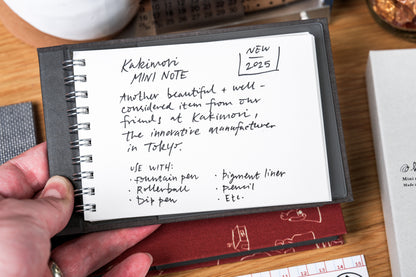 Kakimori
MINI NOTE
NEW
2025
Another beautiful + well-
considered item from our
friends at Kakimori,
the innovative manufacturer
in Tokyo.
USE WITH:
· fountain pen
· Rollerball
· Dip pen
· pigment liner
· pencil
· Etc.